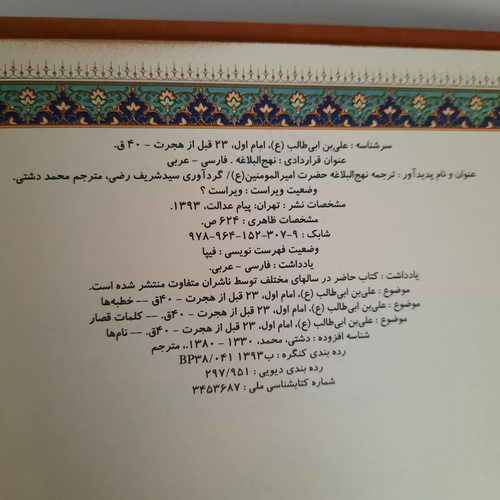 سرشناسه : علی‌بن ابی‌طالب (ع)، امام اول، ۲۳ قبل از هجرت - ۴۰ ق.
عنوان قراردادی : نهج‌البلاغه . فارسی - عربی
عنوان و نام پدیدآور : ترجمه نهج‌البلاغه حضرت امیرالمومنین(ع)/ گردآوری سیدشریف رضی، مترجم محمد دشتی.
وضعیت ویراست : ویراست ؟
مشخصات نشر : تهران: پیام عدالت، ۱۳۹۳.
مشخصات ظاهری : ۶۲۴ ص.
شابک : ۹-۳۰۷-۱۵۲-۹۶۴-۹۷۸
وضعیت فهرست نویسی : فیپا
یادداشت : فارسی - عربی.
یادداشت : کتاب حاضر در سالهای مختلف توسط ناشران متفاوت منتشر شده است.
موضوع : علی‌بن ابی‌طالب (ع)، امام اول، ۲۳ قبل از هجرت - ۴۰ق. -- خطبه‌ها
موضوع : علی‌بن ابی‌طالب (ع)، امام اول، ۲۳ قبل از هجرت - ۴۰ق. -- کلمات قصار
موضوع : علی‌بن ابی‌طالب (ع)، امام اول، ۲۳ قبل از هجرت - ۴۰ق. -- نام‌ها
شناسه افزوده : دشتی، محمد، ۱۳۳۰ - ۱۳۸۰، مترجم
رده بندی کنگره : ب۱۳۹۳ ۰۴۱/BP۳۸
رده بندی دیویی : ۲۹۷/۹۵۱
شماره کتابشناسی ملی : ۳۴۵۳۶۸۷